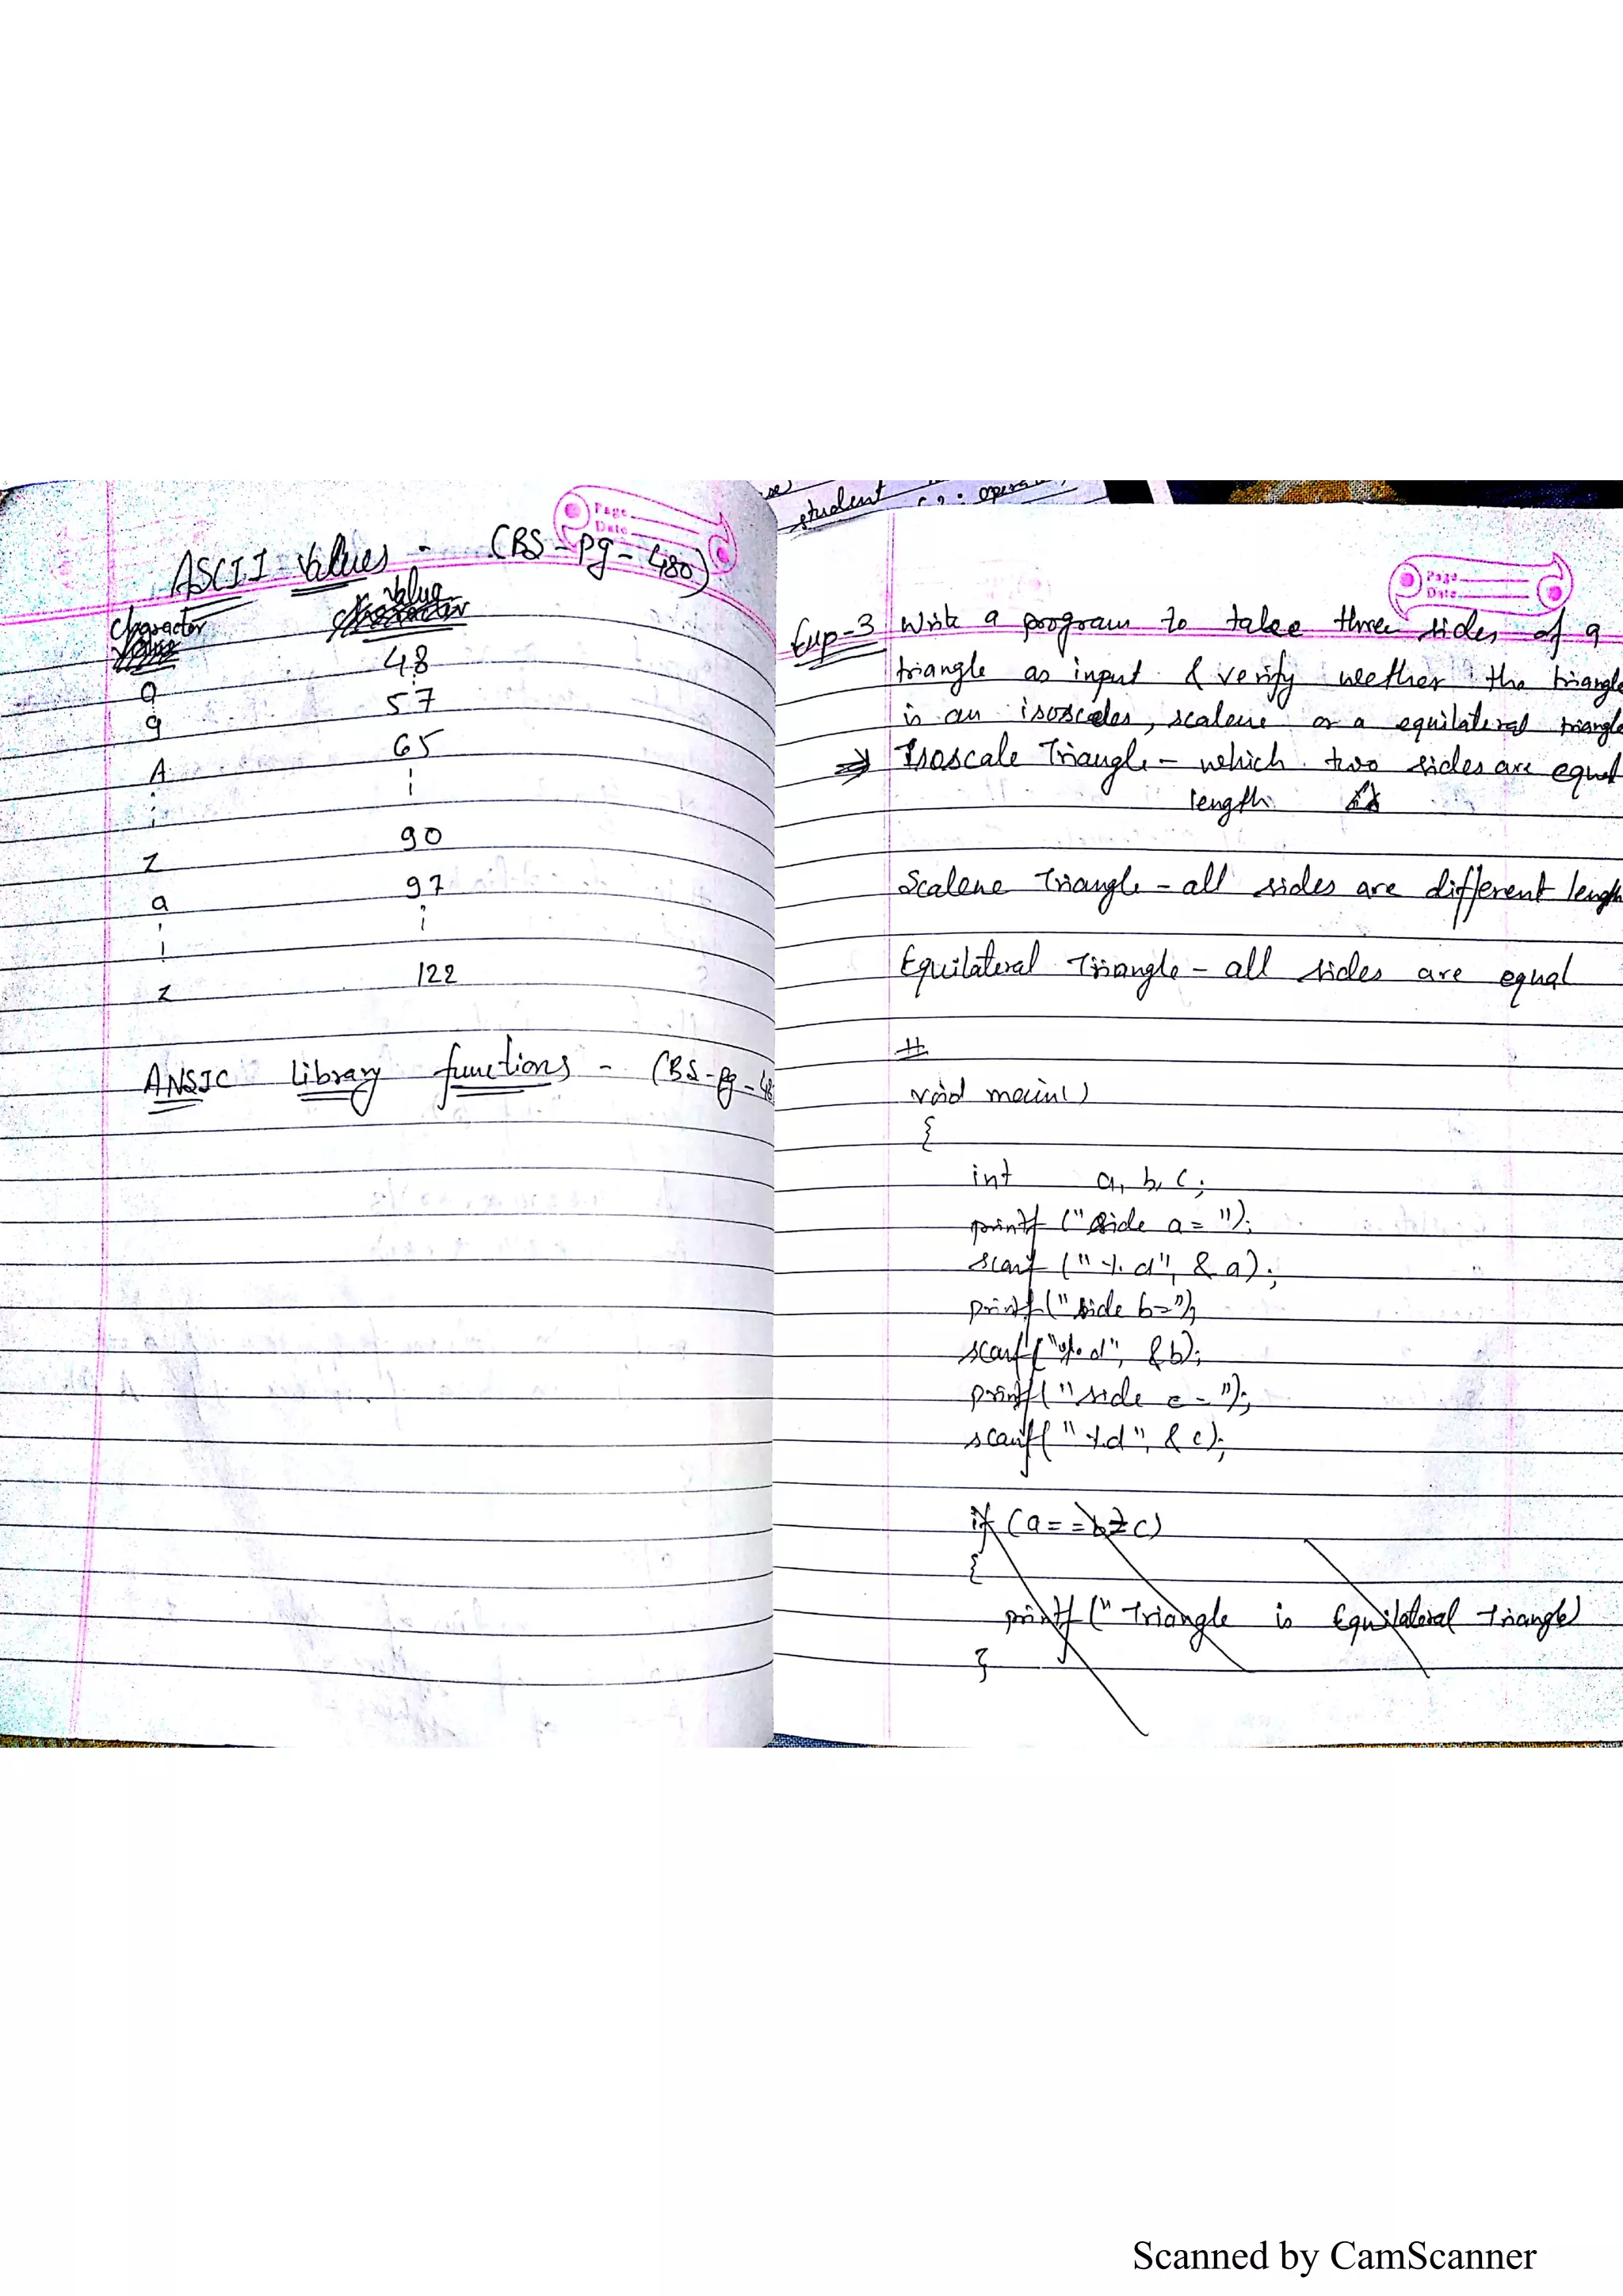 ASCII Values - (BS - Pg - 480)
Character Value
0 48
9 57
A 65
Z 90
a 97
z 122
ANSIC Library functions - (BS - Pg - 48
student
Page
Date
Page
Date
Exp-3 Write a program to take three sides of a
triangle as input & verify weether the triangle
is an isosceles, scalene or a equilateral triangle
⇒ Isoscale Triangle - which two sides are equal
length
Scalene Triangle - all sides are different length
Equilateral Triangle - all sides are equal
#
void main()
{
int a, b, c;
printf ("Side a = ");
scanf ("%d", & a);
printf ("side b=");
scanf ("%d", &b);
printf ("side c = ");
scanf ("%d", & c);
if (a == b = c)
{
printf ("Triangle is Equilateral Triangle)
}
Scanned by CamScanner